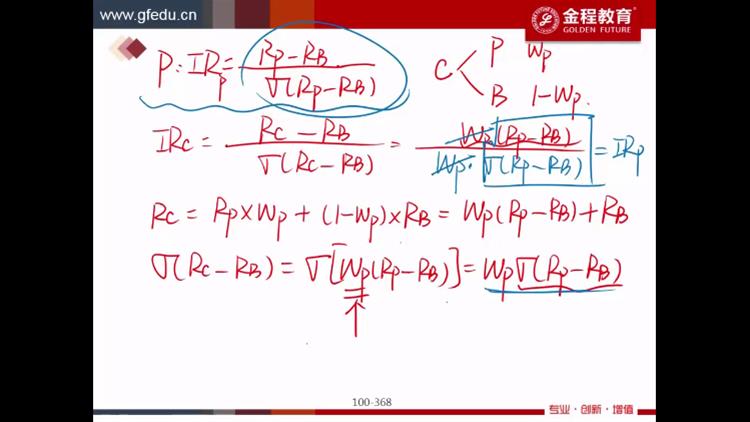 www.gfedu.cn
金程教育
GOLDEN FUTURE
P: IRp = (Rp-RB) / σ(Rp-RB)
C < P Wp
B 1-Wp.
IRc = (Rc-RB) / σ(Rc-RB) = Wp(Rp-RB) / Wp·σ(Rp-RB) = IRp
Rc = Rp×Wp + (1-Wp)×RB = Wp(Rp-RB)+RB
σ(Rc-RB) = σ[Wp(Rp-RB)] = Wpσ(Rp-RB)
100-368
专业·创新·增值